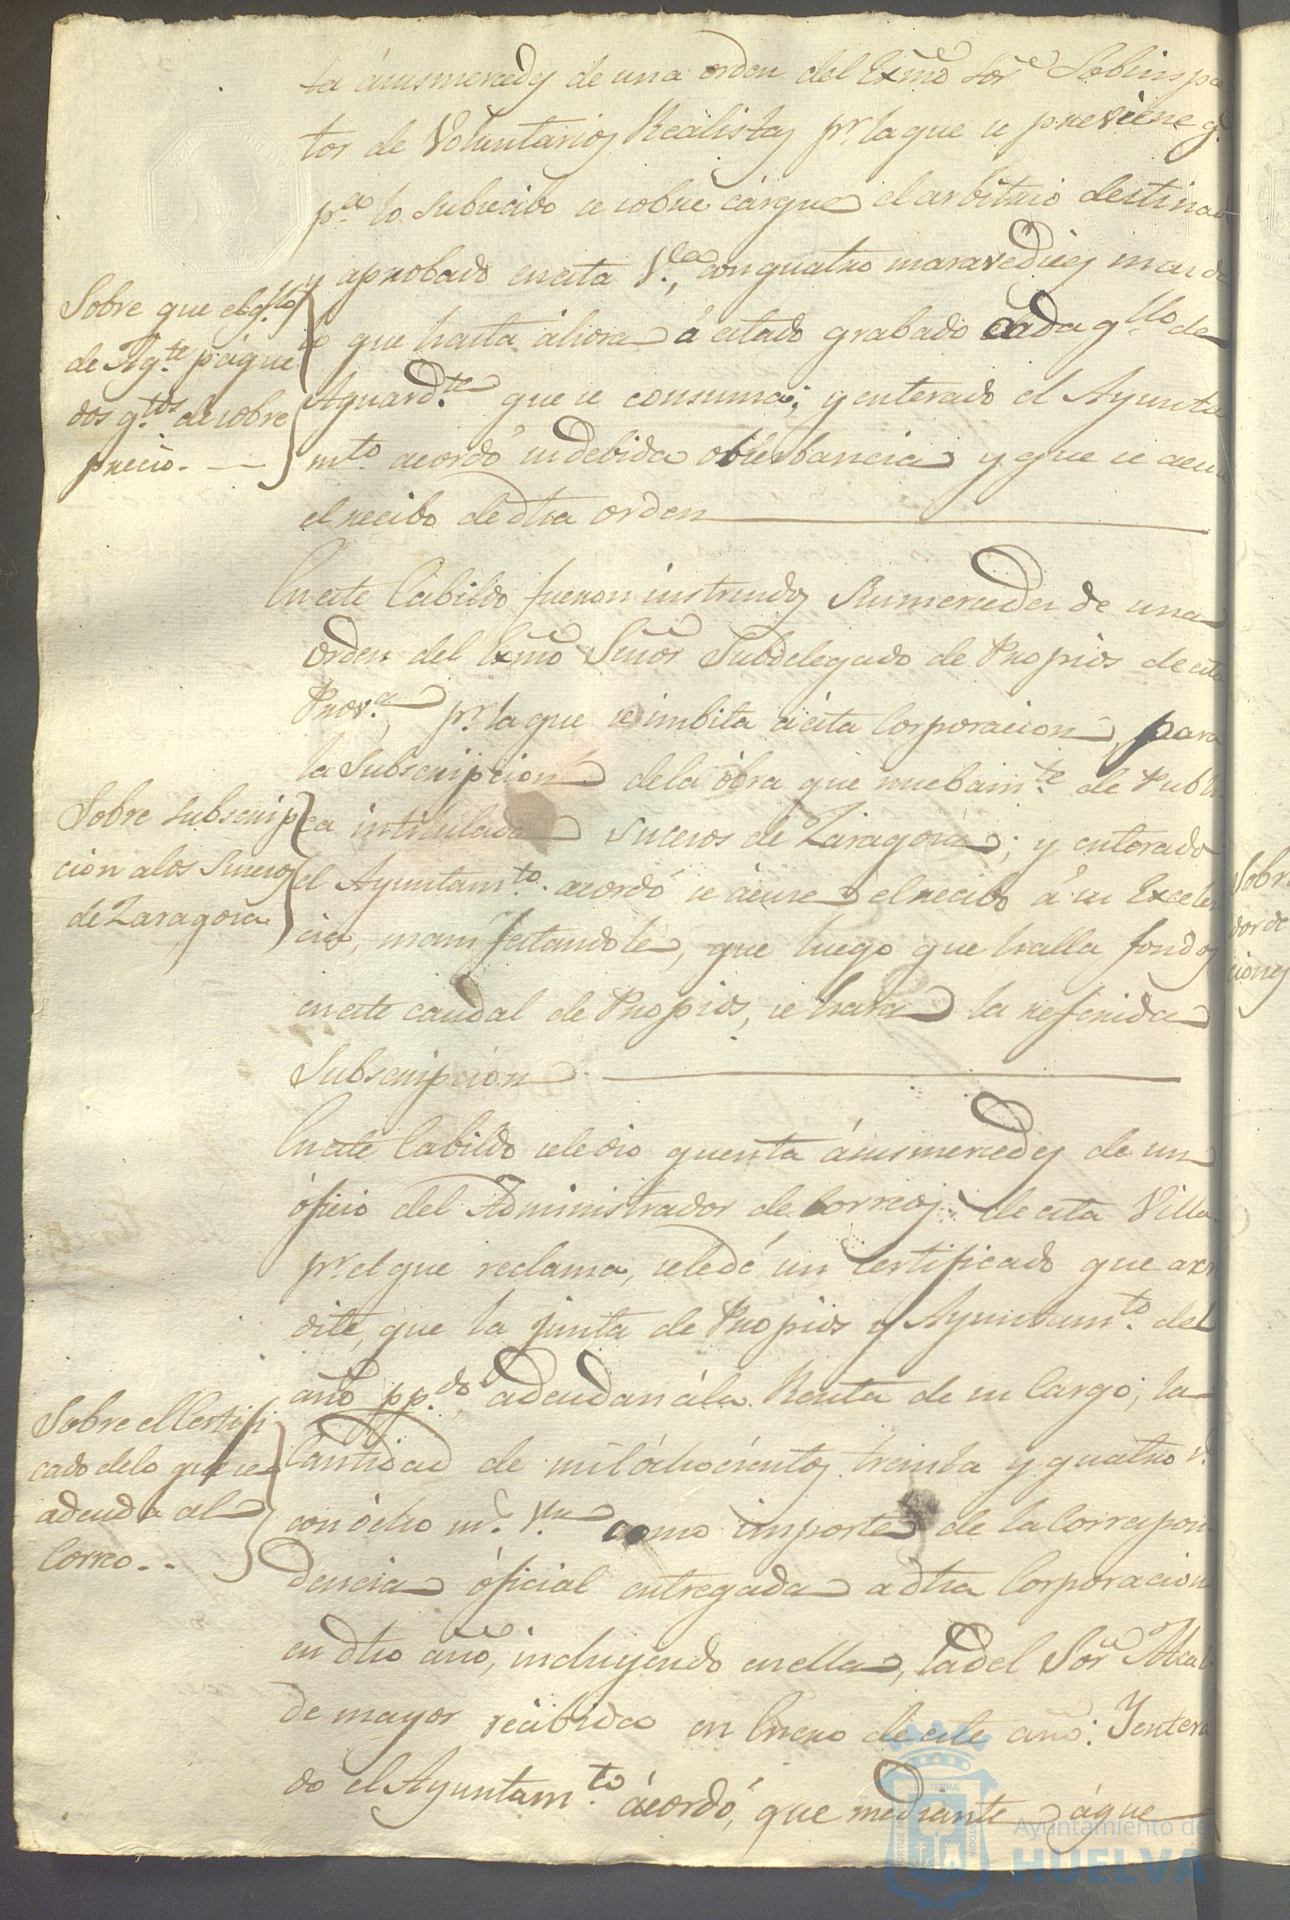 ta ásusmercedes de una orden del Exmo Sor Sobinspec
tor de Voluntarios Realistas pr. la que se previene q.
pa. lo subcecibo se sobre cárgue el arbitrio destinado
y aprobado en esta Va. con quatro maravedises mas de
lo que hasta áhora á estado grabado cada qllo de
Aguardte. que se consuma; y enterado el Ayunta
mto. acordó su debida obserbancia y que se acuse
el recibo de dha orden
Sobre que el qllo
de Agte. págue
dos qtos de sobre
precio.
En este Cabildo fueron instruidos Susmercedes de una
Orden del Exmo Señor Subdelegado de Propios de esta
Prova. pr. la que se imbita á ésta Corporacion para
la Subscripcion de la óbra que nuebamte. se Publi
ca intitulada sucesos de Zaragoza; y enterado
el Ayuntamto. acordó se ácuse el recibo á su Excelen
cia, manifestandole, que luego que halla fondos
en este caudal de Propios, se hara la referida
Subscripcion
Sobre subscrip
cion a los Sucesos
de Zaragoza
En este Cabildo sele dio quenta ásusmercedes de un
óficio del Administrador de Correos de esta Villa
pr. el que reclama, sele dé un Certificado que acre
dite, que la junta de Propios y Ayuntamto. del
año pp.do adeudan á la Renta de su Cargo, la
Cantidad de mil óchocientos treinta y quatro r.
con ócho m. Vn. como importe de la Correspon
dencia óficial entregada a dha Corporacion
en dho año, incluyendo en ella, la del Sor Alcal
de mayor recibida en Enero de este año: Y entera
do el Ayuntamto. ácordó, que mediante áque
Sobre el Certifi
cado de lo que se
adeuda al
Correo.
Sobre
dor de
ciones
Ayuntamiento de
HUELVA